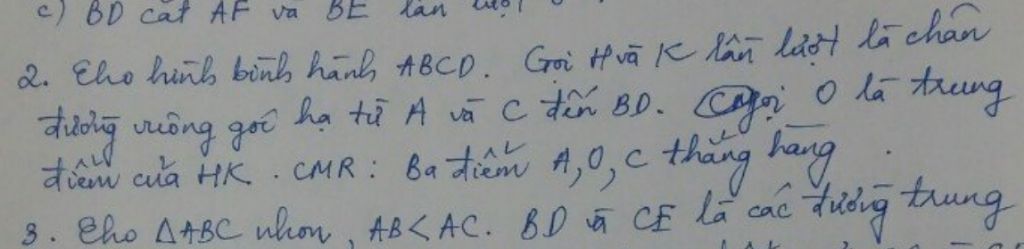 c) BD cắt AF và BE lần lượt
2. Cho hình bình hành ABCD. Gọi H và K lần lượt là chân
đường vuông góc hạ từ A và C đến BD. Gọi O là trung
điểm của HK. CMR: Ba điểm A, O, C thẳng hàng.
3. Cho ΔABC nhọn, AB < AC. BD và CE là các đường trung